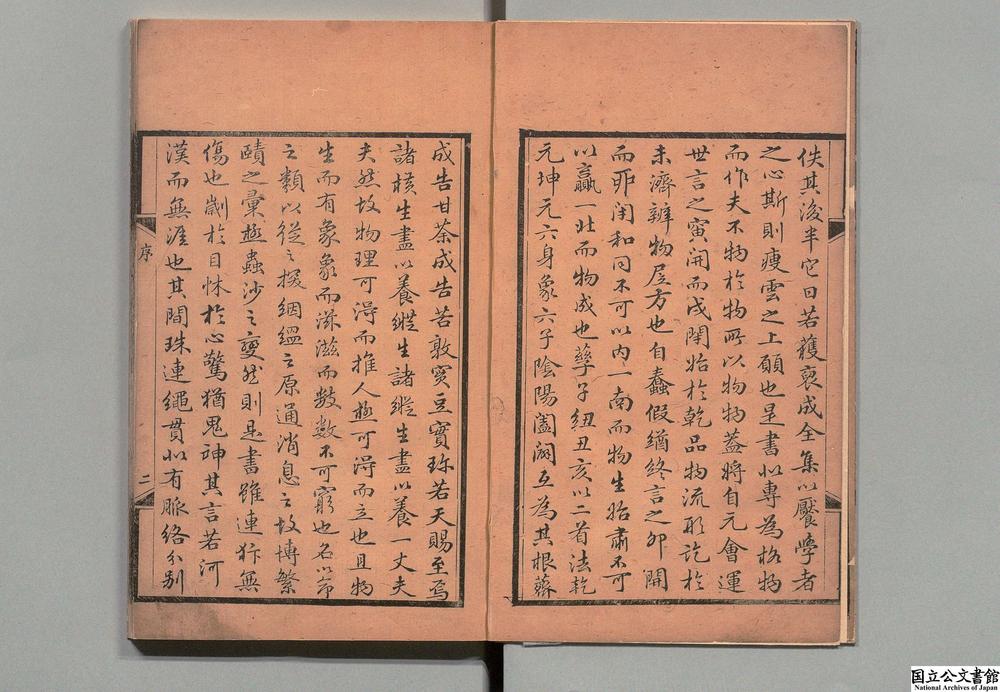 佚其後半它日若獲裒成全集以饜學者
之心斯則瘦雲之上願也是書似專為格物
而作夫不物於物所以物物蓋將自元會運
世言之寅開而戌閉始於乾品物流形訖於
未濟辨物居方也自蠢假循終言之卯開
而丣閉和同不可以內一南而物生始肅不可
以贏一北而物成也孳子紐丑亥以二首法乾
元坤元六身象六子陰陽闔闢互為其根薺
成告甘荼成告苦敦實豆實珎若天賜至焉
諸橫生盡以養縱生諸縱生盡以養一丈夫
夫然故物理可得而推人極可得而立也且物
生而有象象而滋滋而數數不可窮也名以命
之類以從之援絪縕之原通消息之故博繁
賾之彙極蟲沙之變然則是書雖連犿無
傷也劌於目怵於心驚猶鬼神其言若河
漢而無涯也其間珠連繩貫似有脈絡分別
序
二
国立公文書館
National Archives of Japan